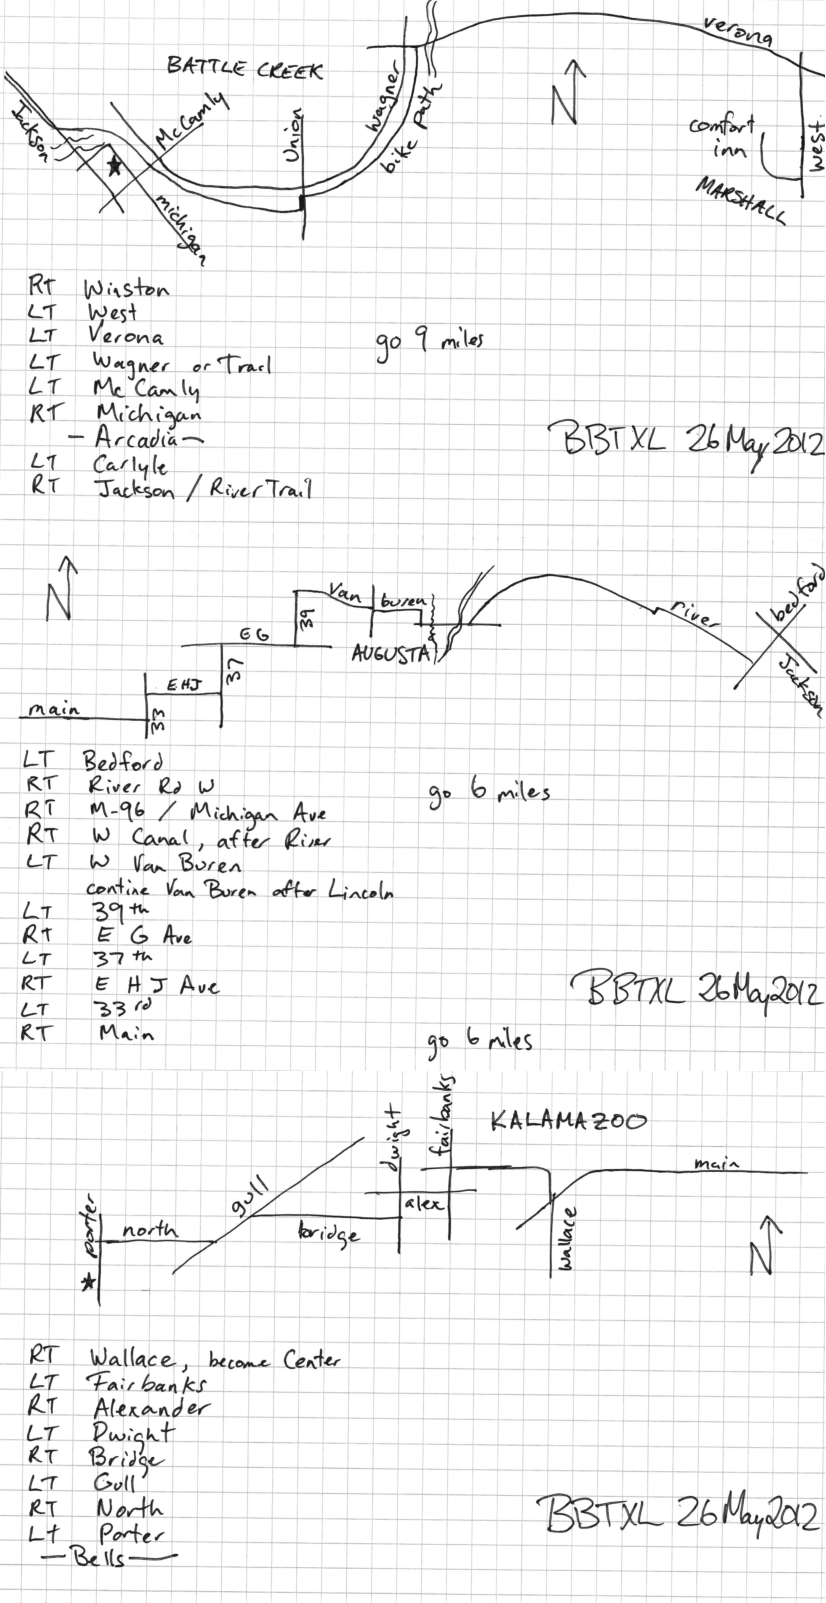 verona
BATTLE CREEK
Jackson
McCamly
Union
wagner
bike path
N
comfort
inn
west
MARSHALL
michigan
RT Winston
LT West
LT Verona go 9 miles
LT Wagner or Trail
LT McCamly
RT Michigan
— Arcadia —
LT Carlyle
RT Jackson / River Trail
BBTXL 26 May 2012
N
Van buren
39
EG
AUGUSTA
river
bedford
Jackson
37
EHJ
main
33
LT Bedford
RT River Rd W go 6 miles
RT M-96 / Michigan Ave
RT W Canal, after River
LT W Van Buren
contine Van Buren after Lincoln
LT 39th
RT E G Ave
LT 37th
RT E H J Ave
LT 33rd
RT Main go 6 miles
BBTXL 26 May 2012
KALAMAZOO
dwight
fairbanks
main
gull
alex
porter
north
bridge
wallace
N
RT Wallace, become Center
LT Fairbanks
RT Alexander
LT Dwight
RT Bridge
LT Gull
RT North
Lt Porter
— Bells —
BBTXL 26 May 2012